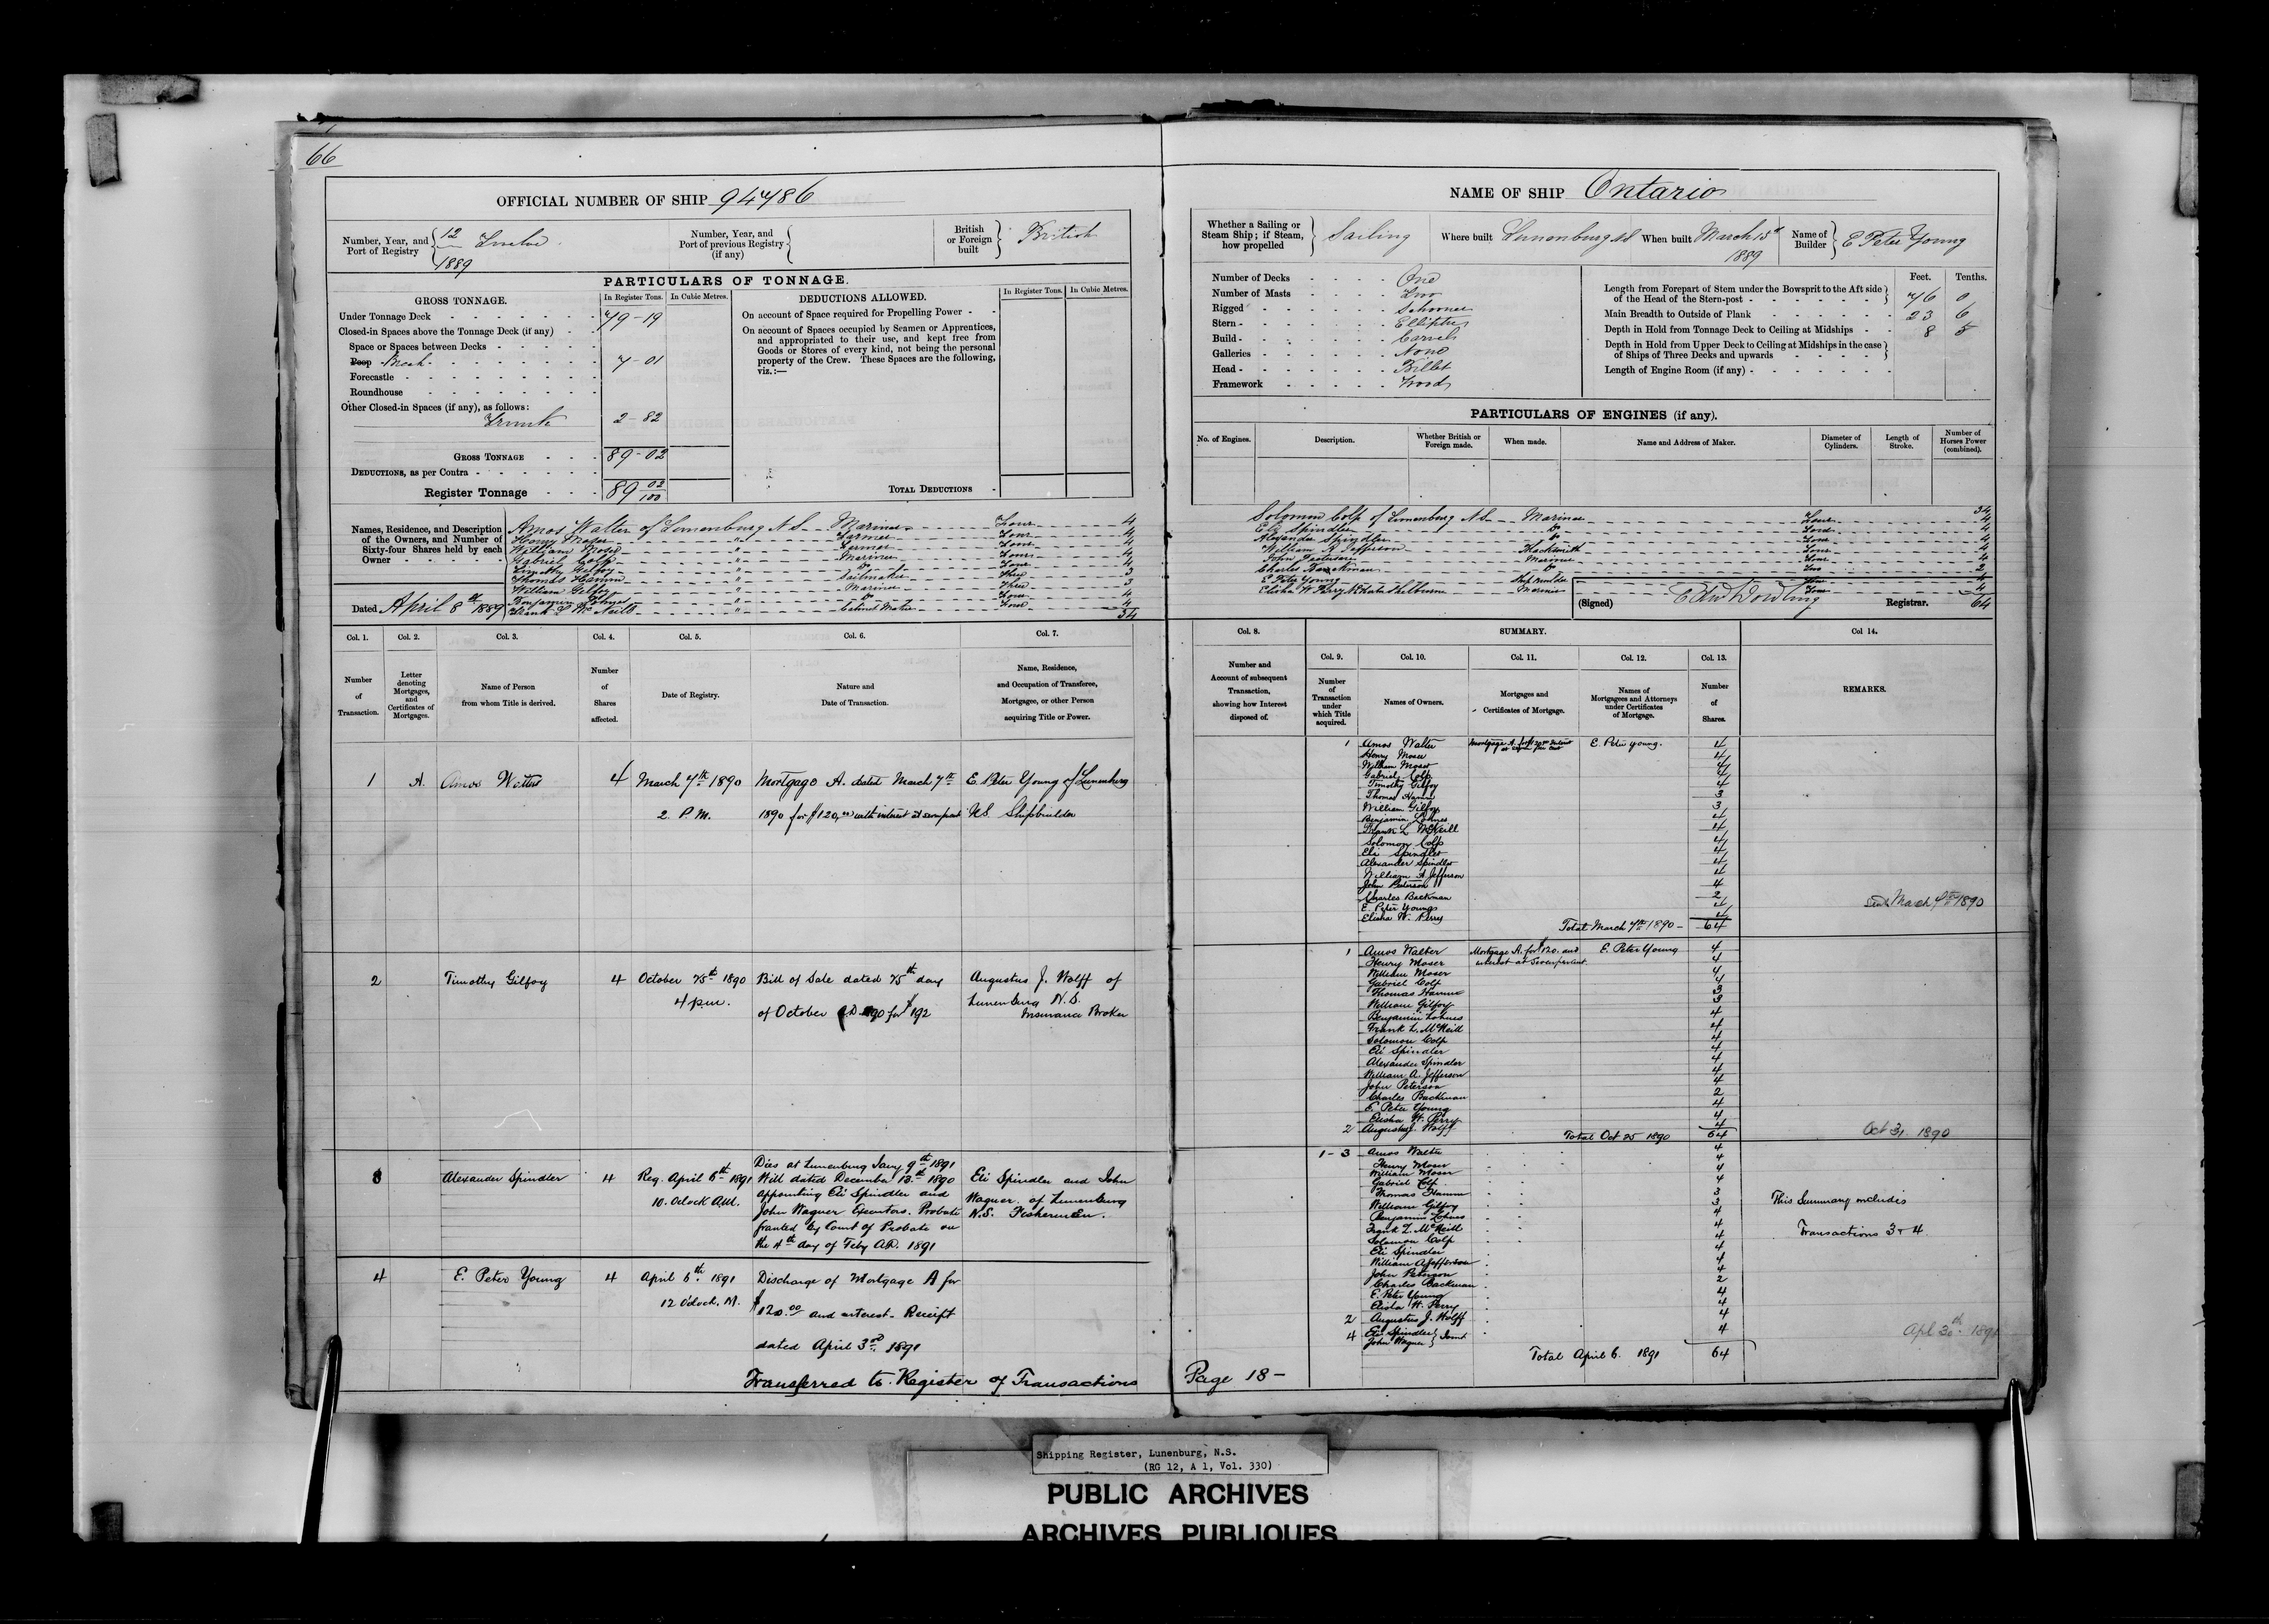 66
OFFICIAL NUMBER OF SHIP 94786
Number, Year, and Port of Registry 12 Twelve 1889
Number, Year, and Port of previous Registry (if any)
British or Foreign built British
PARTICULARS OF TONNAGE.
GROSS TONNAGE.
In Register Tons. In Cubic Metres.
Under Tonnage Deck 79-19
Closed-in Spaces above the Tonnage Deck (if any)
Space or Spaces between Decks
Poop 7-01
Forecastle
Roundhouse
Other Closed-in Spaces (if any), as follows:
Trunk 2-82
GROSS TONNAGE 89-02
DEDUCTIONS, as per Contra
Register Tonnage 89 02/100
DEDUCTIONS ALLOWED.
In Register Tons. In Cubic Metres.
On account of Space required for Propelling Power
On account of Spaces occupied by Seamen or Apprentices,
and appropriated to their use, and kept free from
Goods or Stores of every kind, not being the personal
property of the Crew. These Spaces are the following,
viz.:—
TOTAL DEDUCTIONS
Names, Residence, and Description
of the Owners, and Number of
Sixty-four Shares held by each
Owner
Amos Walter of Lunenburg N.S. Mariner Four 4
Henry Moser " Farmer Four 4
William Moser " Farmer Four 4
Gabriel Colp " Mariner Four 4
Timothy Gilfoy " Do Four 4
Thomas Hamm " Sailmaker Three 3
William Gilfoy " Mariner Three 3
Benjamin Lohnes " Do Four 4
Frank L McNeill " Cabinet Maker Four 4
34
Dated April 8th 1889
NAME OF SHIP Ontario
Whether a Sailing or Steam Ship; if Steam, how propelled Sailing
Where built Lunenburg NS
When built March 15th 1889
Name of Builder E Peter Young
Number of Decks One
Number of Masts Two
Rigged Schooner
Stern Elliptic
Build Carvel
Galleries None
Head Billet
Framework Wood
Feet. Tenths.
Length from Forepart of Stem under the Bowsprit to the Aft side
of the Head of the Stern-post 76 0
Main Breadth to Outside of Plank 23 6
Depth in Hold from Tonnage Deck to Ceiling at Midships 8 5
Depth in Hold from Upper Deck to Ceiling at Midships in the case
of Ships of Three Decks and upwards
Length of Engine Room (if any)
PARTICULARS OF ENGINES (if any).
No. of Engines. Description. Whether British or Foreign made. When made. Name and Address of Maker. Diameter of Cylinders. Length of Stroke. Number of Horses Power (combined).
34
Solomon Colp of Lunenburg N.S. Mariner Four 4
Eli Spindler Do Four 4
Alexander Spindler Do Four 4
William A Jefferson Blacksmith Four 4
John Peterson Mariner Four 4
Charles Backman Do Two 2
E Peter Young Ship builder Four 4
Elisha W Perry Shelburne Mariner Four 4
64
(Signed) Edw Dowling Registrar.
Col. 1. Col. 2. Col. 3. Col. 4. Col. 5. Col. 6. Col. 7.
Number of Transaction.
Letter denoting Mortgages, and Certificates of Mortgages.
Name of Person from whom Title is derived.
Number of Shares affected.
Date of Registry.
Nature and Date of Transaction.
Name, Residence, and Occupation of Transferee, Mortgagee, or other Person acquiring Title or Power.
1 A. Amos Walter 4 March 7th 1890 2. P.M.
Mortgage A. dated March 7th
1890 for $120,00 with interest at seven per cent
E Peter Young of Lunenburg
N.S. Shipbuilder
2 Timothy Gilfoy 4 October 25th 1890 4 p.m.
Bill of Sale dated 25th day
of October AD 1890 for $192
Augustus J. Wolff of
Lunenburg N.S.
Insurance Broker
3 Alexander Spindler 4 Reg. April 6th 1891 10. Oclock A.M.
Dies at Lunenburg Jany 9th 1891
Will dated December 13th 1890
appointing Eli Spindler and
John Wagner Executors. Probate
granted by Court of Probate on
the 4th day of Feby A.D. 1891
Eli Spindler and John
Wagner. of Lunenburg
N.S. Fishermen.
4 E. Peter Young 4 April 6th. 1891 12 Oclock. M.
Discharge of Mortgage A for
$120.00 and interest. Receipt
dated April 3rd. 1891
Transferred to Register of Transactions Page 18-
Col. 8. SUMMARY. Col 14.
Col. 9. Col. 10. Col. 11. Col. 12. Col. 13.
Number and Account of subsequent Transaction, showing how Interest disposed of.
Number of Transaction under which Title acquired.
Names of Owners.
Mortgages and Certificates of Mortgage.
Names of Mortgagees and Attorneys under Certificates of Mortgage.
Number of Shares.
REMARKS.
1 Amos Walter Mortgage A. E. Peter Young. 4
Henry Moser 4
William Moser 4
Gabriel Colp 4
Timothy Gilfoy 4
Thomas Hamm 3
William Gilfoy 3
Benjamin Lohnes 4
Frank L McNeill 4
Solomon Colp 4
Eli Spindler 4
Alexander Spindler 4
William A Jefferson 4
John Peterson 4
Charles Backman 2
E. Peter Young 4
Elisha W. Perry 4
Total March 7th 1890 - 64
March 7th 1890
1 Amos Walter Mortgage A. for $120. and interest at seven per cent. E. Peter Young 4
Henry Moser 4
William Moser 4
Gabriel Colp 4
Thomas Hamm 3
William Gilfoy 3
Benjamin Lohnes 4
Frank L. McNeill 4
Solomon Colp 4
Eli Spindler 4
Alexander Spindler 4
William A. Jefferson 4
John Peterson 4
Charles Backman 2
E. Peter Young 4
Elisha W. Perry 4
2 Augustus J. Wolff 4
Total Oct 25 1890 64
Oct 31 1890
1-3 Amos Walter 4
Henry Moser 4
William Moser 4
Gabriel Colp 4
Thomas Hamm 3
William Gilfoy 3
Benjamin Lohnes 4
Frank L. McNeill 4
Solomon Colp 4
Eli Spindler 4
William A Jefferson 4
John Peterson 4
Charles Backman 2
E. Peter Young 4
Elisha W. Perry 4
2 Augustus J. Wolff 4
4 Eli Spindler John Wagner } Joint 4
Total April 6. 1891 64
This Summary includes
Transactions 3 & 4
Apl 30th. 1891
Shipping Register, Lunenburg, N.S.
(RG 12, A 1, Vol. 330)
PUBLIC ARCHIVES
ARCHIVES PUBLIQUES